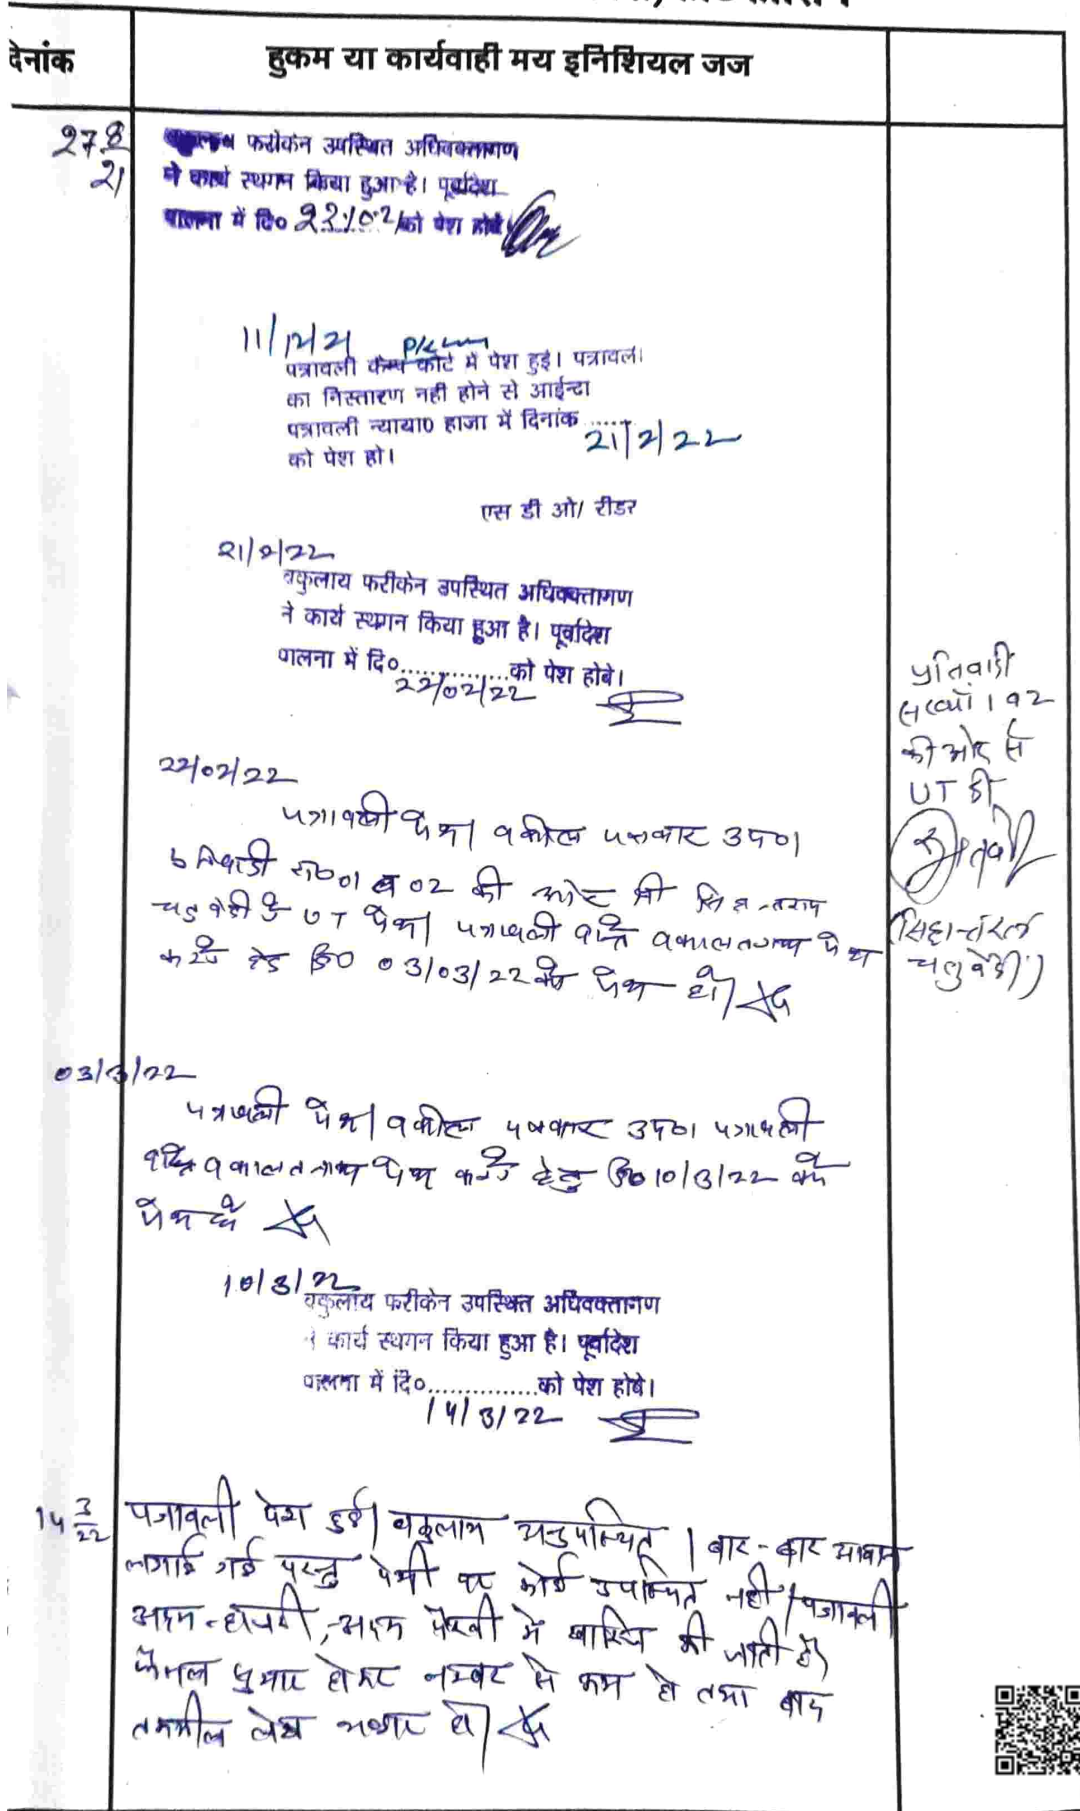 दिनांक
हुकम या कार्यवाही मय इनिशियल जज
27 8/21
फरीकेन उपस्थित अधिवक्तागण
ने कार्य स्थगन किया हुआ है। पूर्वादेश
पालना में दि० 22.10.21 को पेश होवे।
11/12/21
पत्रावली कैम्प कोर्ट में पेश हुई। पत्रावली
का निस्तारण नही होने से आईन्दा
पत्रावली न्याया0 हाजा में दिनांक ......
21/2/22
को पेश हो।
एस डी ओ/ रीडर
21/2/22
वकुलाय फरीकेन उपस्थित अधिवक्तागण
ने कार्य स्थगन किया हुआ है। पूर्वादेश
पालना में दि०...............को पेश होवे।
22/02/22
प्रतिवादी
संख्या 1 व 2
की ओर से
UT दी
(सिद्धान्तराज
चतुर्वेदी)
22/02/22
पत्रावली पेश। वकील पक्षकार उप0।
प्रतिवादी सं0 01 व 02 की ओर से श्री सिद्धान्तराज
चतुर्वेदी ने UT पेश। पत्रावली वास्ते वकालतनामा पेश
करने हेतु दि0 03/03/22 को पेश हो।
03/3/22
पत्रावली पेश। वकील पक्षकार उप0। पत्रावली
वास्ते वकालतनामा पेश करने हेतु दि0 10/3/22 को
पेश हो
10/3/22
वकुलाय फरीकेन उपस्थित अधिवक्तागण
ने कार्य स्थगन किया हुआ है। पूर्वादेश
पालना में दि०...............को पेश होवे।
14/3/22
14 3/22
पत्रावली पेश हुई। वकुलाय अनुपस्थित। बार-बार आवाज
लगाई गई परन्तु पेशी पर कोई उपस्थित नही। पत्रावली
अदम-हाजरी, अदम पैरवी में खारिज की जाती है।
फैसल शुमार होकर नम्बर से कम हो तथा बाद
तकमील लेख भण्डार हो।